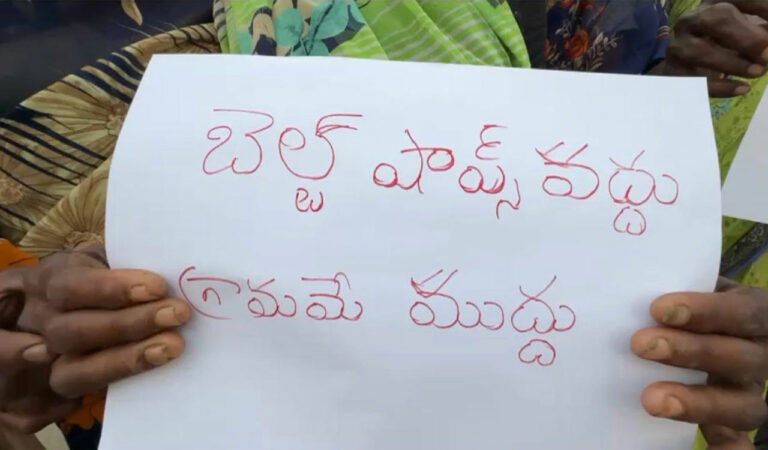 బెల్ట్ షాప్స్ వద్దు
గ్రామమే ముద్దు